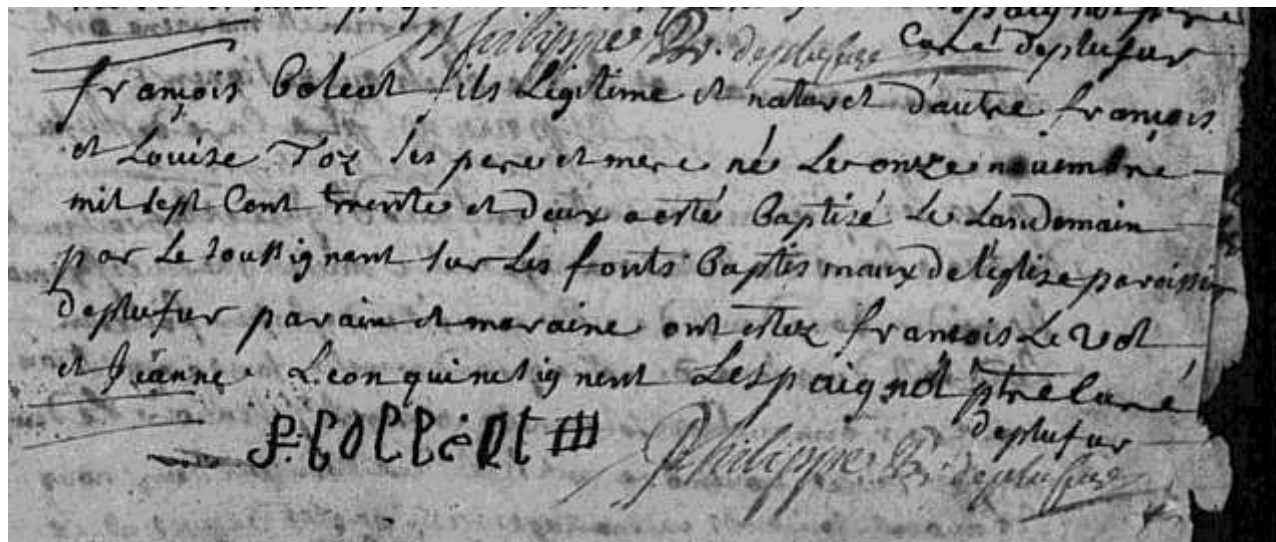 Philippe Pr. de plufur Curé de plufur
françois Coleat fils Légitime et naturel d'autre françois
et Louise Toz ses pere et mere né Le onze novembre
mil sept Cent trente et deux a estés Baptizé Le Landemain
par Le Soussignant sur Les fonts Baptismaux de l'église paroissi
de plufur parain et maraine ont estez françois Le Rol
et Jéanne Leon qui ne signent Lespaignol ptre Curé
de plufur
F. Colleat
Philippe Pr. de plufur